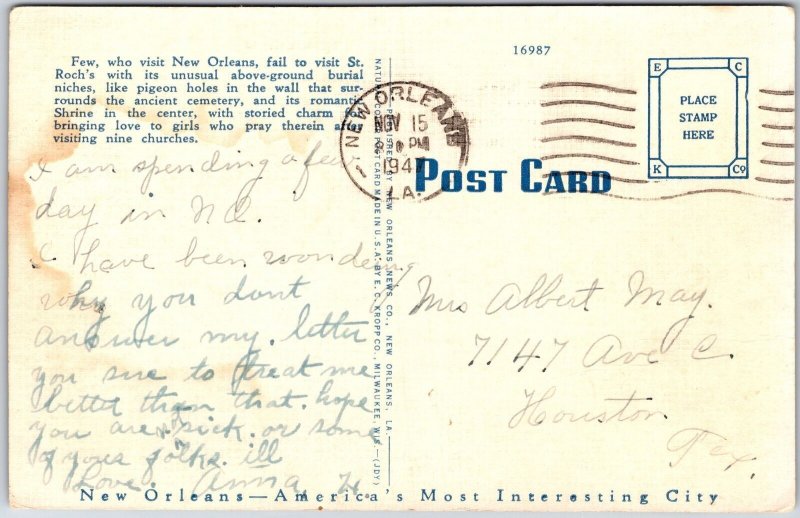 Few, who visit New Orleans, fail to visit St.
Roch's with its unusual above-ground burial
niches, like pigeon holes in the wall that sur-
rounds the ancient cemetery, and its romantic
Shrine in the center, with storied charm of
bringing love to girls who pray therein after
visiting nine churches.
I am spending a few
day in N.O.
I have been wondering
why you dont
answer my. letter
you sure to treat me
better than that. hope
you are sick. or some
of your folks. ill
Love. Anna H.
NATURAL COLOR POST CARD MADE IN U.S.A. BY E. C. KROPP CO., MILWAUKEE, WIS.—(JDY)
PUBLISHED BY NEW ORLEANS NEWS CO., NEW ORLEANS, LA.
NEW ORLEANS
NOV 15
PM
1947
LA.
16987
POST CARD
E C
PLACE
STAMP
HERE
K CO
Mrs Albert May.
7147 Ave C.
Houston
Tex.
New Orleans—America's Most Interesting City